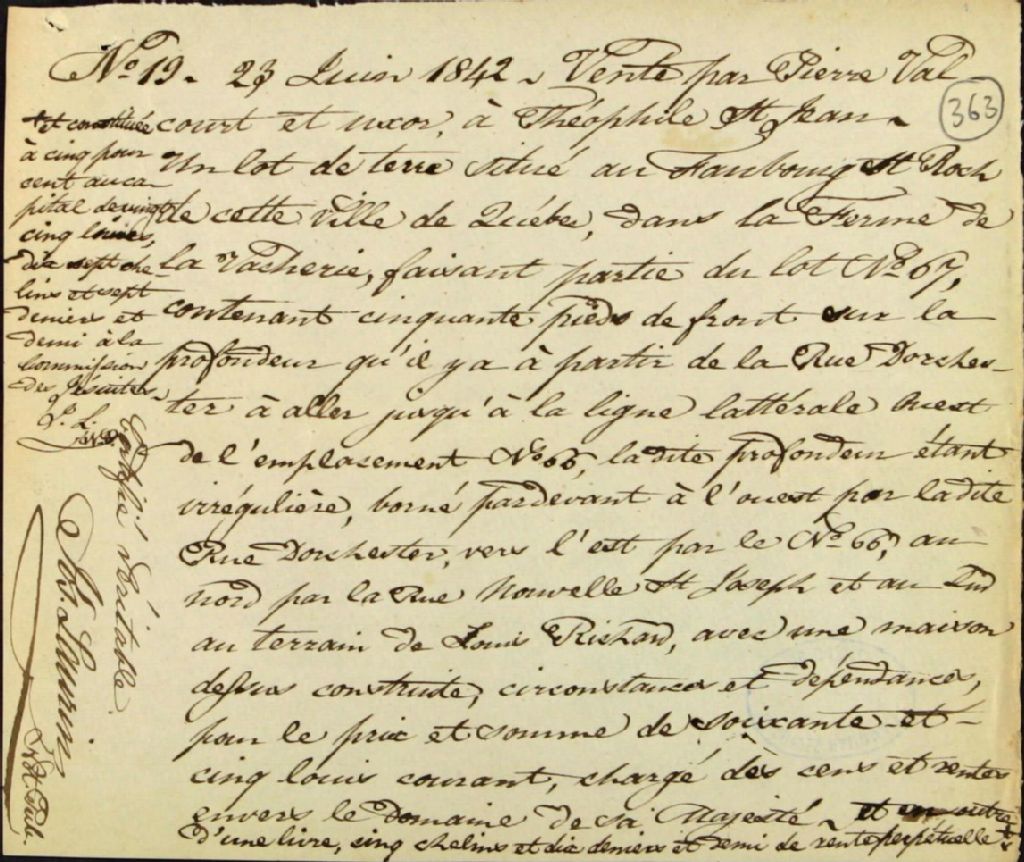 No 19. 23 Juin 1842. Vente par Pierre Val
363
court et uxor, à Théophile St Jean.
Un lot de terre situé au Faubourg St Roch
de cette ville de Québec, dans la Ferme de
la Vacherie, faisant partie du lot No 67,
contenant cinquante pieds de front sur la
profondeur qu'il y a à partir de la Rue Dorches-
ter à aller jusqu'à la ligne lattérale Ouest
de l'emplacement No 66, la dite profondeur étant
irrégulière, borné pardevant à l'ouest par la dite
Rue Dorchester, vers l'est par le No 66, au
nord par la Rue Nouvelle St Joseph et au Sud
au terrain de Louis Richard, avec une maison
dessus construite, circonstances et dépendances,
pour le prix et somme de soixante-et-
cinq louis courant, chargé des cens et rentes
envers le Domaine de Sa Majesté. et en outre
d'une livre, cinq chelins et dix deniers et demi de rente perpétuelle
constituée
à cinq pour
cent au ca
pital de vingt
cinq louis,
dix sept che
lins et sept
deniers et
demi à la
Commission
des Jésuites.
J. L.
N.P.
Certifié véritable
Jos. Laurin
Not. Publ.